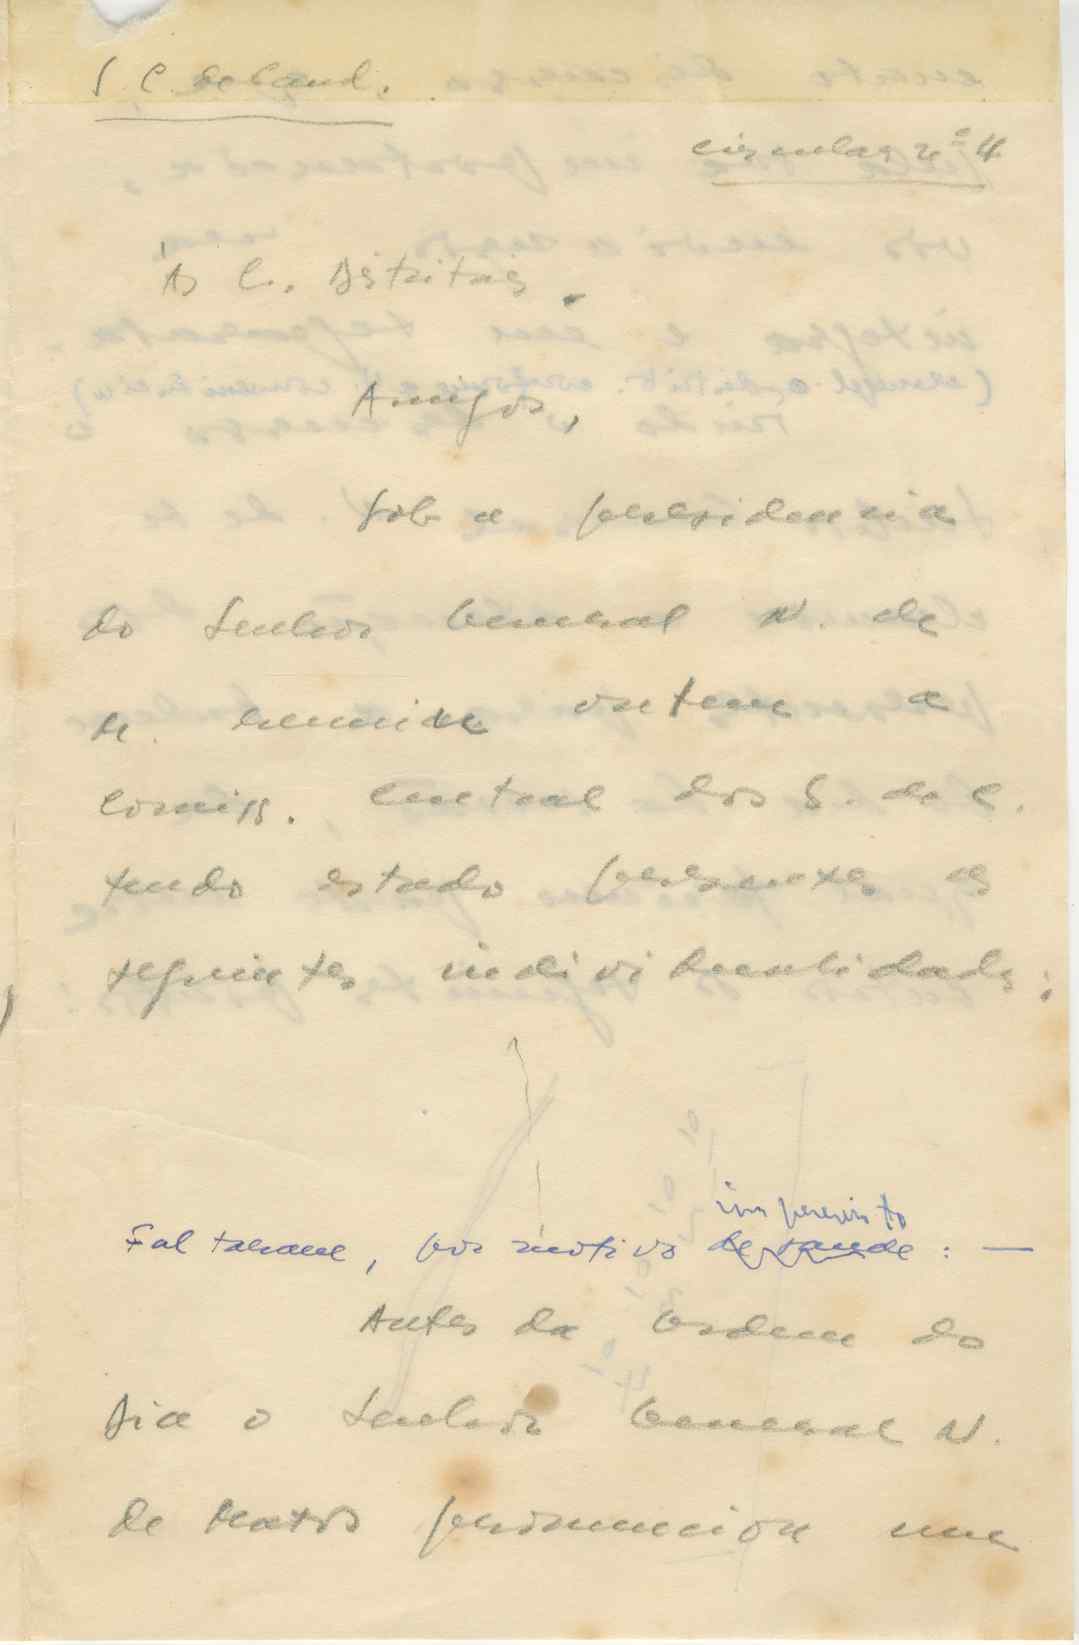 S. C. da Cand.
circular nº 4
Às C. Distritais.
Amigos,
Sob a presidencia
do Senhor General N. de
M. reuniu ontem a
Comiss. Central dos S. da C.
tendo estado presentes as
seguintes individualidades:
imprevisto
Faltaram, por motivo de saude : —
Antes da Ordem do
dia o Senhor General N.
de Matos pronunciou um